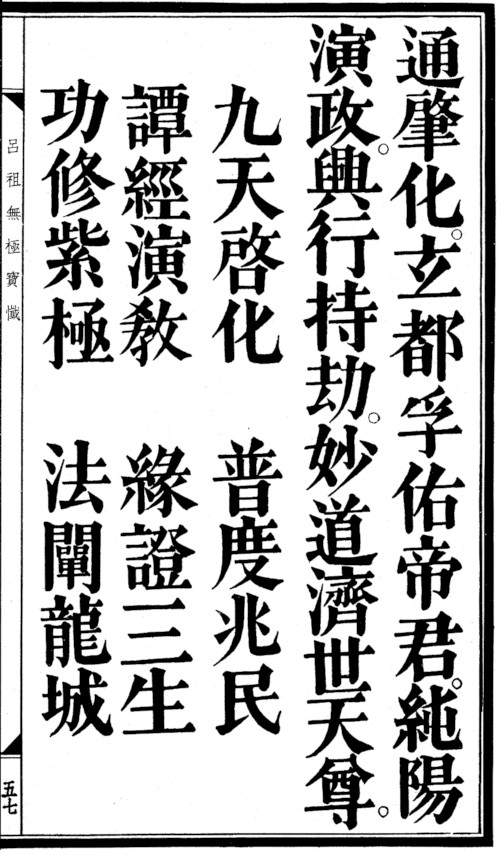 通肇化。玄都孚佑帝君。純陽
演政。興行持劫。妙道濟世天尊。
九天啓化　普度兆民
譚經演教　緣證三生
功修紫極　法闡龍城
呂祖無極寶懺
五七